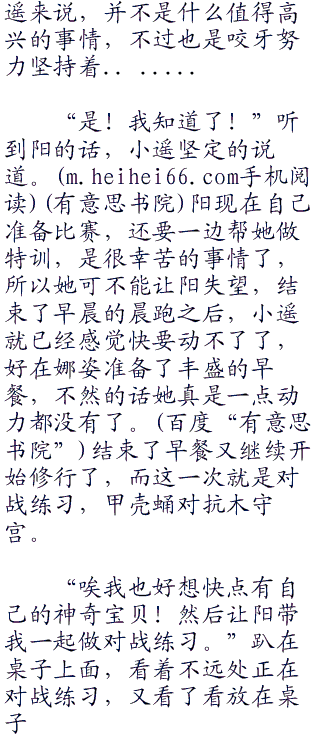 遥来说，并不是什么值得高
兴的事情，不过也是咬牙努
力坚持着.. .....
“是！我知道了！”听
到阳的话，小遥坚定的说
道。(m.heihei66.com手机阅
读)(有意思书院)阳现在自己
准备比赛，还要一边帮她做
特训，是很幸苦的事情了，
所以她可不能让阳失望，结
束了早晨的晨跑之后，小遥
就已经感觉快要动不了了，
好在娜姿准备了丰盛的早
餐，不然的话她真是一点动
力都没有了。(百度“有意思
书院”)结束了早餐又继续开
始修行了，而这一次就是对
战练习，甲壳蛹对抗木守
宫。
“唉我也好想快点有自
己的神奇宝贝！然后让阳带
我一起做对战练习。”趴在
桌子上面，看着不远处正在
对战练习，又看了看放在桌
子